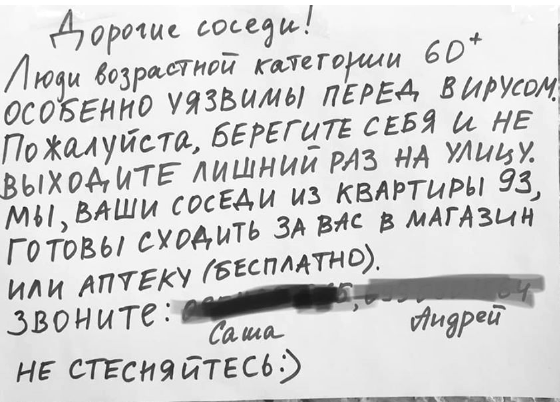 Дорогие соседи!
Люди возрастной категории 60+
ОСОБЕННО УЯЗВИМЫ ПЕРЕД ВИРУСОМ.
Пожалуйста, БЕРЕГИТЕ СЕБЯ И НЕ
ВЫХОДИТЕ ЛИШНИЙ РАЗ НА УЛИЦУ.
МЫ, ВАШИ СОСЕДИ ИЗ КВАРТИРЫ 93,
ГОТОВЫ СХОДИТЬ ЗА ВАС В МАГАЗИН
ИЛИ АПТЕКУ (БЕСПЛАТНО).
ЗВОНИТЕ:
Саша Андрей
НЕ СТЕСНЯЙТЕСЬ:)